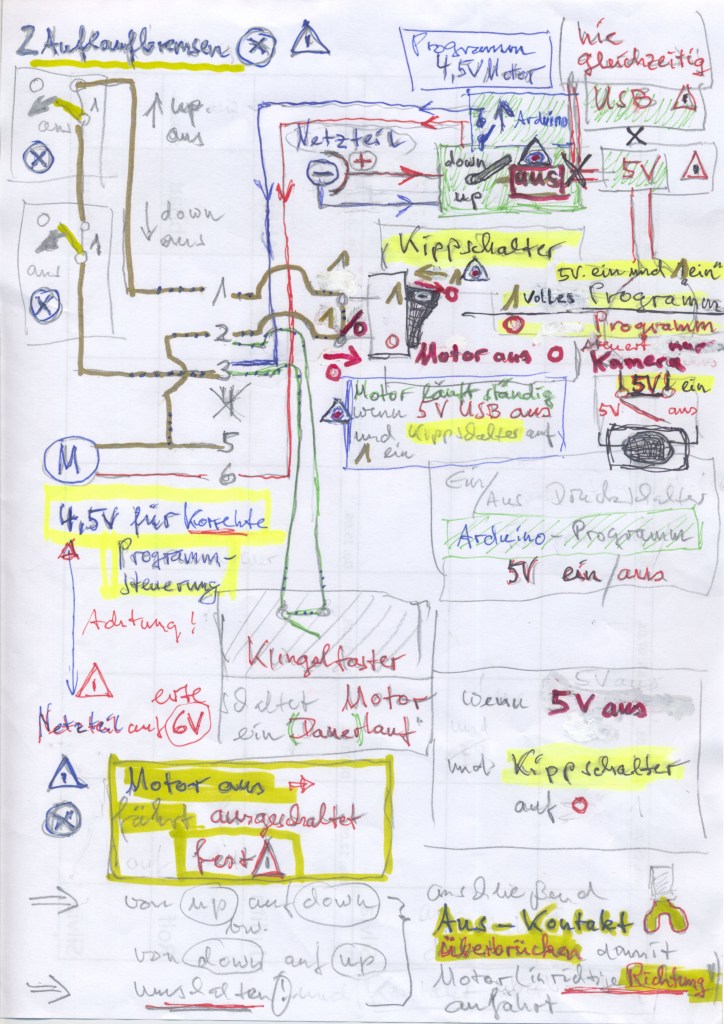 2 Aufkaufbremsen
Programm
4,5V Motor
nie
gleichzeitig
USB
Arduino
Netzteil
down
up
aus!
5V
1
aus
up
aus
down
aus
1
aus
Kippschalter
1
2
3
4
5
6
1
1
1
0
0
%
Motor aus 0
5V ein und 1 ein"
1 Volles Programm
0 Programm
steuert nur
Kamera
5V ein
5V aus
Motor läuft ständig
wenn 5V USB aus
und Kippschalter auf
1 ein
M
4,5V für Korrekte
Programm-
steuerung
Achtung!
Netzteil auf 6V
Ein/
Aus Druckschalter
Arduino-Programm
5V ein/aus
Klingeltaster
schaltet Motor
ein (Dauerlauf"
wenn 5V aus
und Kippschalter
auf 0
Motor aus
fährt ausgeschaltet
fest
von up auf down
bzw.
von down auf up
umschalten!
anschließend
Aus-Kontakt
überbrücken damit
Motor in richtige Richtung
anfährt